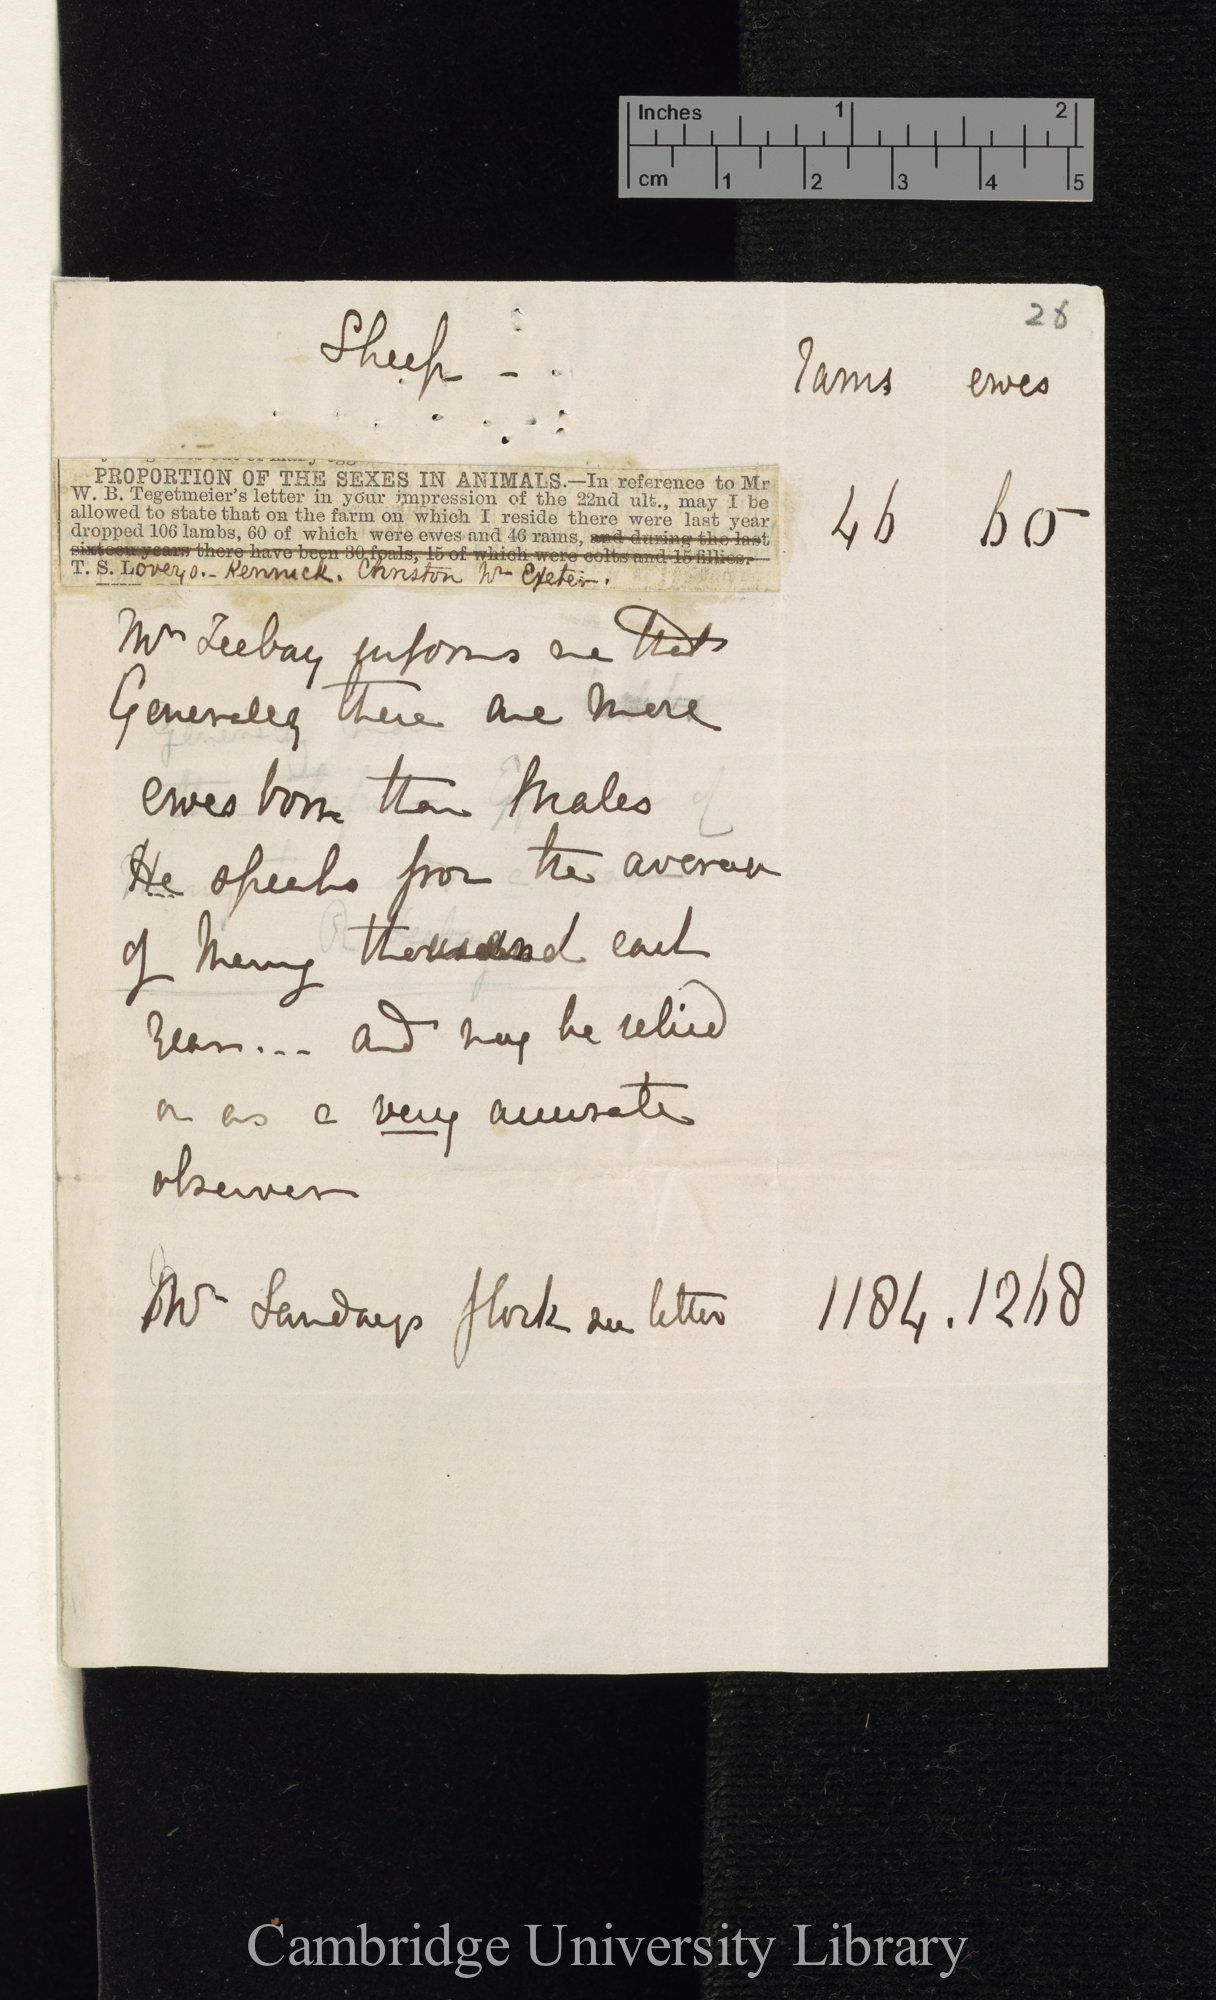 Inches 1 2
cm 1 2 3 4 5
28
Sheep –
rams ewes
PROPORTION OF THE SEXES IN ANIMALS.—In reference to Mr
W. B. Tegetmeier's letter in your impression of the 22nd ult., may I be
allowed to state that on the farm on which I reside there were last year
dropped 106 lambs, 60 of which were ewes and 46 rams, and during the last
sixteen years there have been 30 foals, 15 of which were colts and 15 fillies.—
T. S. Loveys.– Kennick. Christon Nr Exeter.
46 60
Mr Teebay informs me that
Generally there are more
ewes born than males
He speaks from the average
of many thousand each
year... and may be relied
on as a very accurate
observer
Mr Sandays flock see letter 1184. 1268
Cambridge University Library